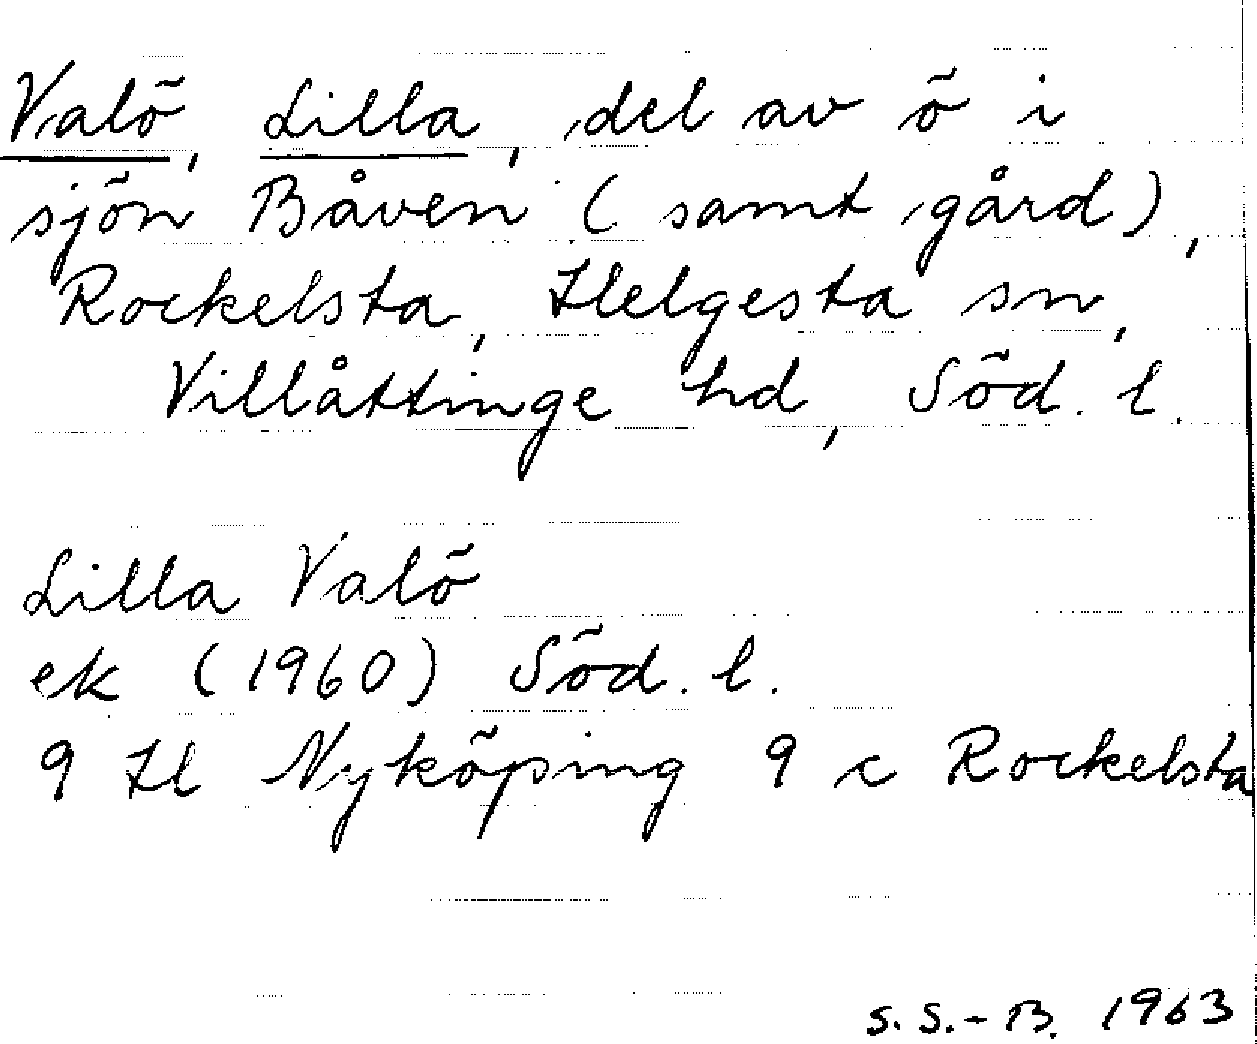 Valö, Lilla, del av ö i
sjön Båven (samt gård),
Rockelsta, Helgesta sn,
Villåttinge hd, Söd. l.
Lilla Valö
ek (1960) Söd. l.
9 H Nyköping 9 c Rockelsta
S. S.-B. 1963